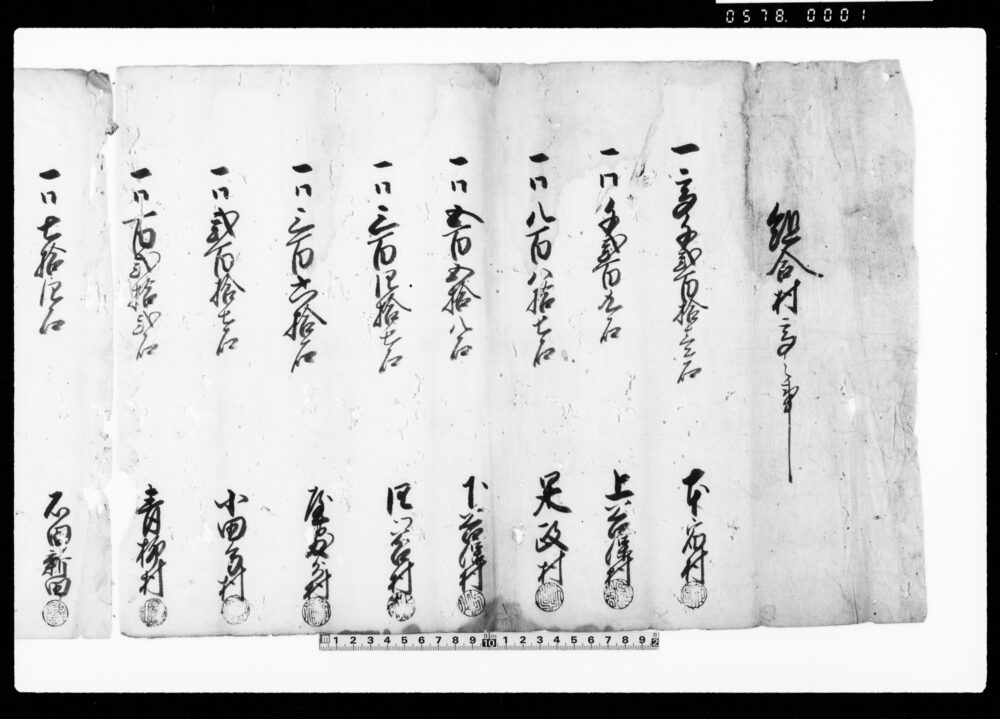 0578. 0001
組合村高之事
一高千弐百拾三石 本宿村
一同千弐百九石 上谷保村
一同八百八拾七石 是政村
一同五百五拾八石 下谷保村
一同三百四拾七石 四ツ谷村
一同三百六拾石 屋敷分村
一同弐百拾七石 小田分村
一同百弐拾弐石 青柳村
一同七拾四石 石田新田
1 2 3 4 5 6 7 8 9 10 1 2 3 4 5 6 7 8 9 2